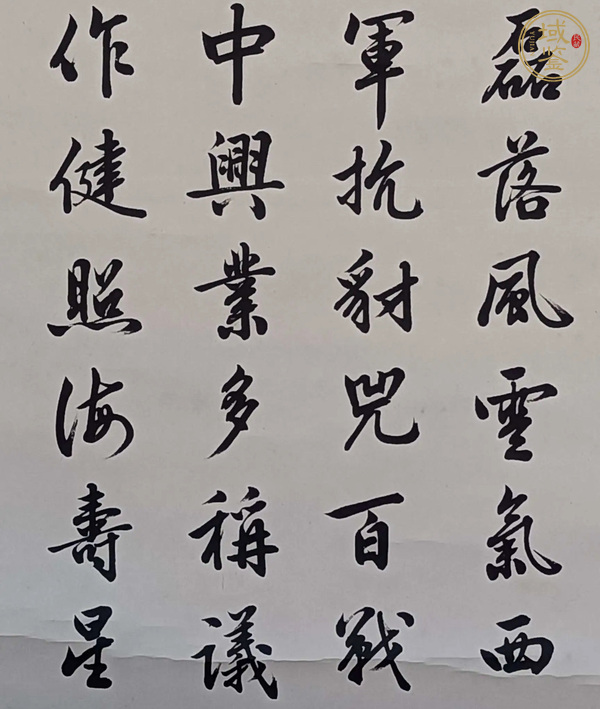 磊落風雲氣西
軍抗豺兕百戰
中興業多稱議
作健照海壽星
域鉴